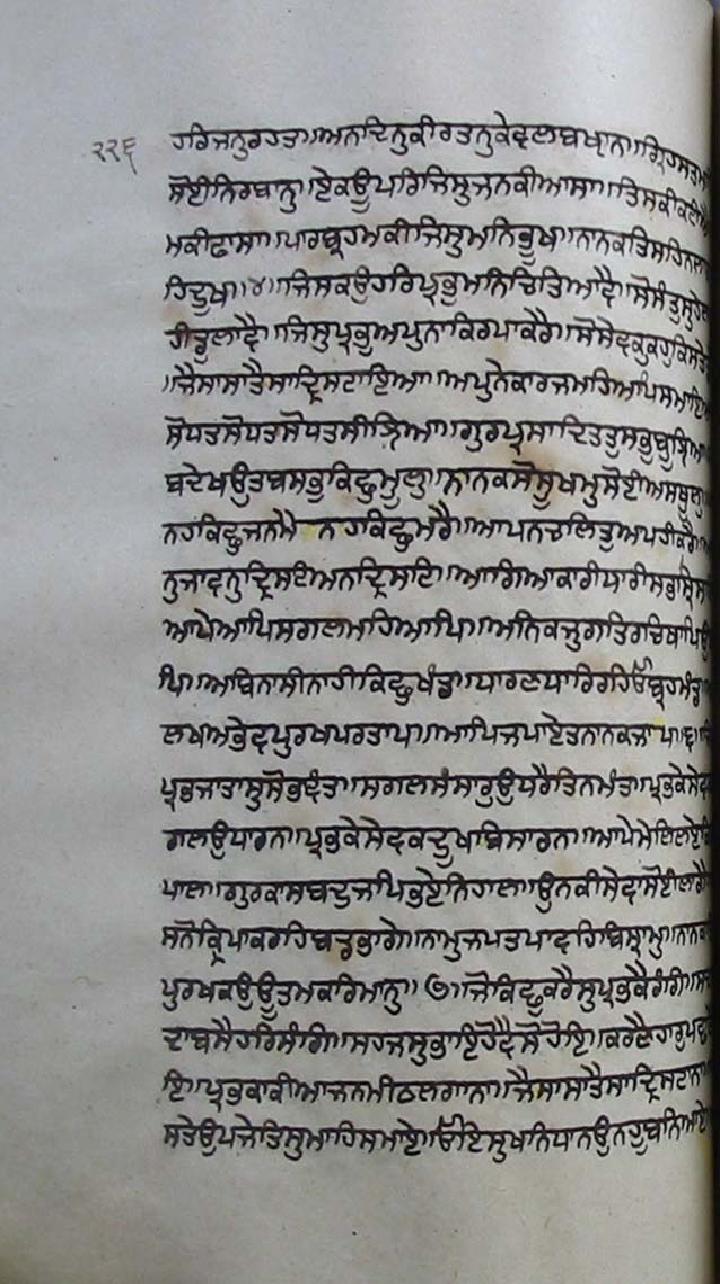 ੨੨੬ ਹਰਿਜਨੁਰਹਤਾ॥ਅਨਦਿਨੁਕੀਰਤਨੁਕੇਵਲਬਖੵਾਨਾ॥ਗ੍ਰਿਹਸਤਮ
ਸੋਈਨਿਰਬਾਨੁ॥ਏਕਊਪਰਿਜਿਸੁਜਨਕੀਆਸਾ॥ਤਿਸਕੀਕਟੀਐ
ਮਕੀਫਾਸਾ॥ਪਾਰਬ੍ਰਹਮਕੀਜਿਸੁਮਨਿਭੂਖ॥ਨਾਨਕਤਿਸਹਿਨਲਾ
ਹਿਦੂਖ॥੪॥ਜਿਸਕਉਹਰਿਪ੍ਰਭੁਮਨਿਚਿਤਿਆਵੈ॥ਸੋਸੰਤੁਸੁਹੇਲਾ
ਹੀਡੁਲਾਵੈ॥ਜਿਸੁਪ੍ਰਭੁਅਪੁਨਾਕਿਰਪਾਕਰੈ॥ਸੋਸੇਵਕੁਕਹੁਕਿਸਤੇ
॥ਜੈਸਾਸਾਤੈਸਾਦ੍ਰਿਸਟਾਇਆ॥ਅਪੁਨੇਕਾਰਜਮਹਿਆਪਿਸਮਾਇ
ਸੋਧਤਸੋਧਤਸੋਧਤਸੀਝਿਆ॥ਗੁਰਪ੍ਰਸਾਦਿਤਤੁਸਭੁਬੂਝਿਆ
ਬਦੇਖਉਤਬਸਭੁਕਿਛੁਮੂਲੁ॥ਨਾਨਕਸੋਸੂਖਮੁਸੋਈਅਸਥੂਲੁ
ਨਹਕਿਛੁਜਨਮੈ ਨਹਕਿਛੁਮਰੈ॥ਆਪਨਚਲਿਤੁਆਪਹੀਕਰੈ॥
ਨੁਜਾਵਨੁਦ੍ਰਿਸਇਅਨਦ੍ਰਿਸਇ॥ਆਗਿਆਕਾਰੀਧਾਰੀਸਭ
ਆਪੇਆਪਿਸਗਲਮਹਿਆਪਿ॥ਅਨਿਕਜੁਗਤਿਰਚਿਥਾਪਿਉ
ਪਿ॥ਅਬਿਨਾਸੀਨਾਹੀਕਿਛੁਖੰਡ॥ਧਾਰਣਧਾਰਿਰਹਿਓਬ੍ਰਹਮੰਡ
ਲਖਅਭੇਵਪੁਰਖਪਰਤਾਪ॥ਆਪਿਜਪਾਏਤਨਾਨਕਜਾਪ॥੬॥ਜਿ
ਪ੍ਰਭਜਾਤਾਸੁਸੋਭਵੰਤ॥ਸਗਲਸੰਸਾਰੁਉਧਰੈਤਿਨਮੰਤ॥ਪ੍ਰਭਕੇਸੇਵ
ਗਲਉਧਾਰਨ॥ਪ੍ਰਭਕੇਸੇਵਕਦੂਖਬਿਸਾਰਨ॥ਆਪੇਮੇਲਿਲਏਕਿ
ਪਾਲ॥ਗੁਰਕਾਸਬਦੁਜਪਿਭਏਨਿਹਾਲ॥ਉਨਕੀਸੇਵਾਸੋਈਲਾਗੈ
ਸਨੋਕ੍ਰਿਪਾਕਰਹਿਬਡਭਾਗੇ॥ਨਾਮੁਜਪਤਪਾਵਹਿਬਿਸ੍ਰਾਮੁ॥ਨਾਨਕ
ਪੁਰਖਕਉਊਤਮਕਰਿਮਾਨੁ॥੭॥ਜੋਕਿਛੁਕਰੈਸੁਪ੍ਰਭਕੈਰੰਗਿ॥ਸ
ਦਾਬਸੈਹਰਿਸੰਗਿ॥ਸਹਜਸੁਭਾਇਹੋਵੈਸੋਹੋਇ॥ਕਰਣੈਹਾਰੁਪਛਾ
ਇ॥ਪ੍ਰਭਕਾਕੀਆਜਨਮੀਠਲਗਾਨਾ॥ਜੈਸਾਸਾਤੈਸਾਦ੍ਰਿਸਟਾਨਾ
ਸਤੇਉਪਜੇਤਿਸੁਮਾਹਿਸਮਾਏ॥ਓਇਸੁਖਨਿਧਾਨਉਨਹੂਬਨਿਆਏ